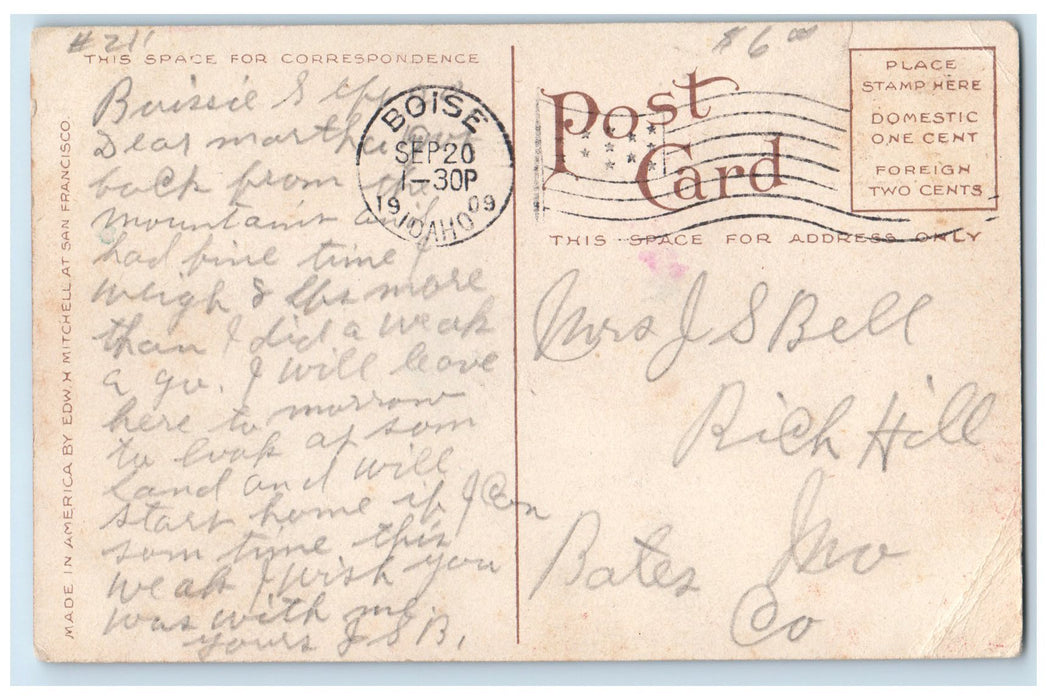 #211
$6.00
THIS SPACE FOR CORRESPONDENCE
Boissie
Dear martha
back from the
mountains and
had fine time I
weigh 8 lbs more
than I did a weak
a go. I will leave
here to morrow
to look at som
land and will
start home if I Can
som time this
weak I wish you
was with me.
yours J S B,
MADE IN AMERICA BY EDW. H MITCHELL AT SAN FRANCISCO.
BOISE
SEP 20
1-30P
1909
IDAHO
Post
Card
PLACE
STAMP HERE
DOMESTIC
ONE CENT
FOREIGN
TWO CENTS
THIS SPACE FOR ADDRESS ONLY
Mrs J S Bell
Rich Hill
Bates Mo
Co